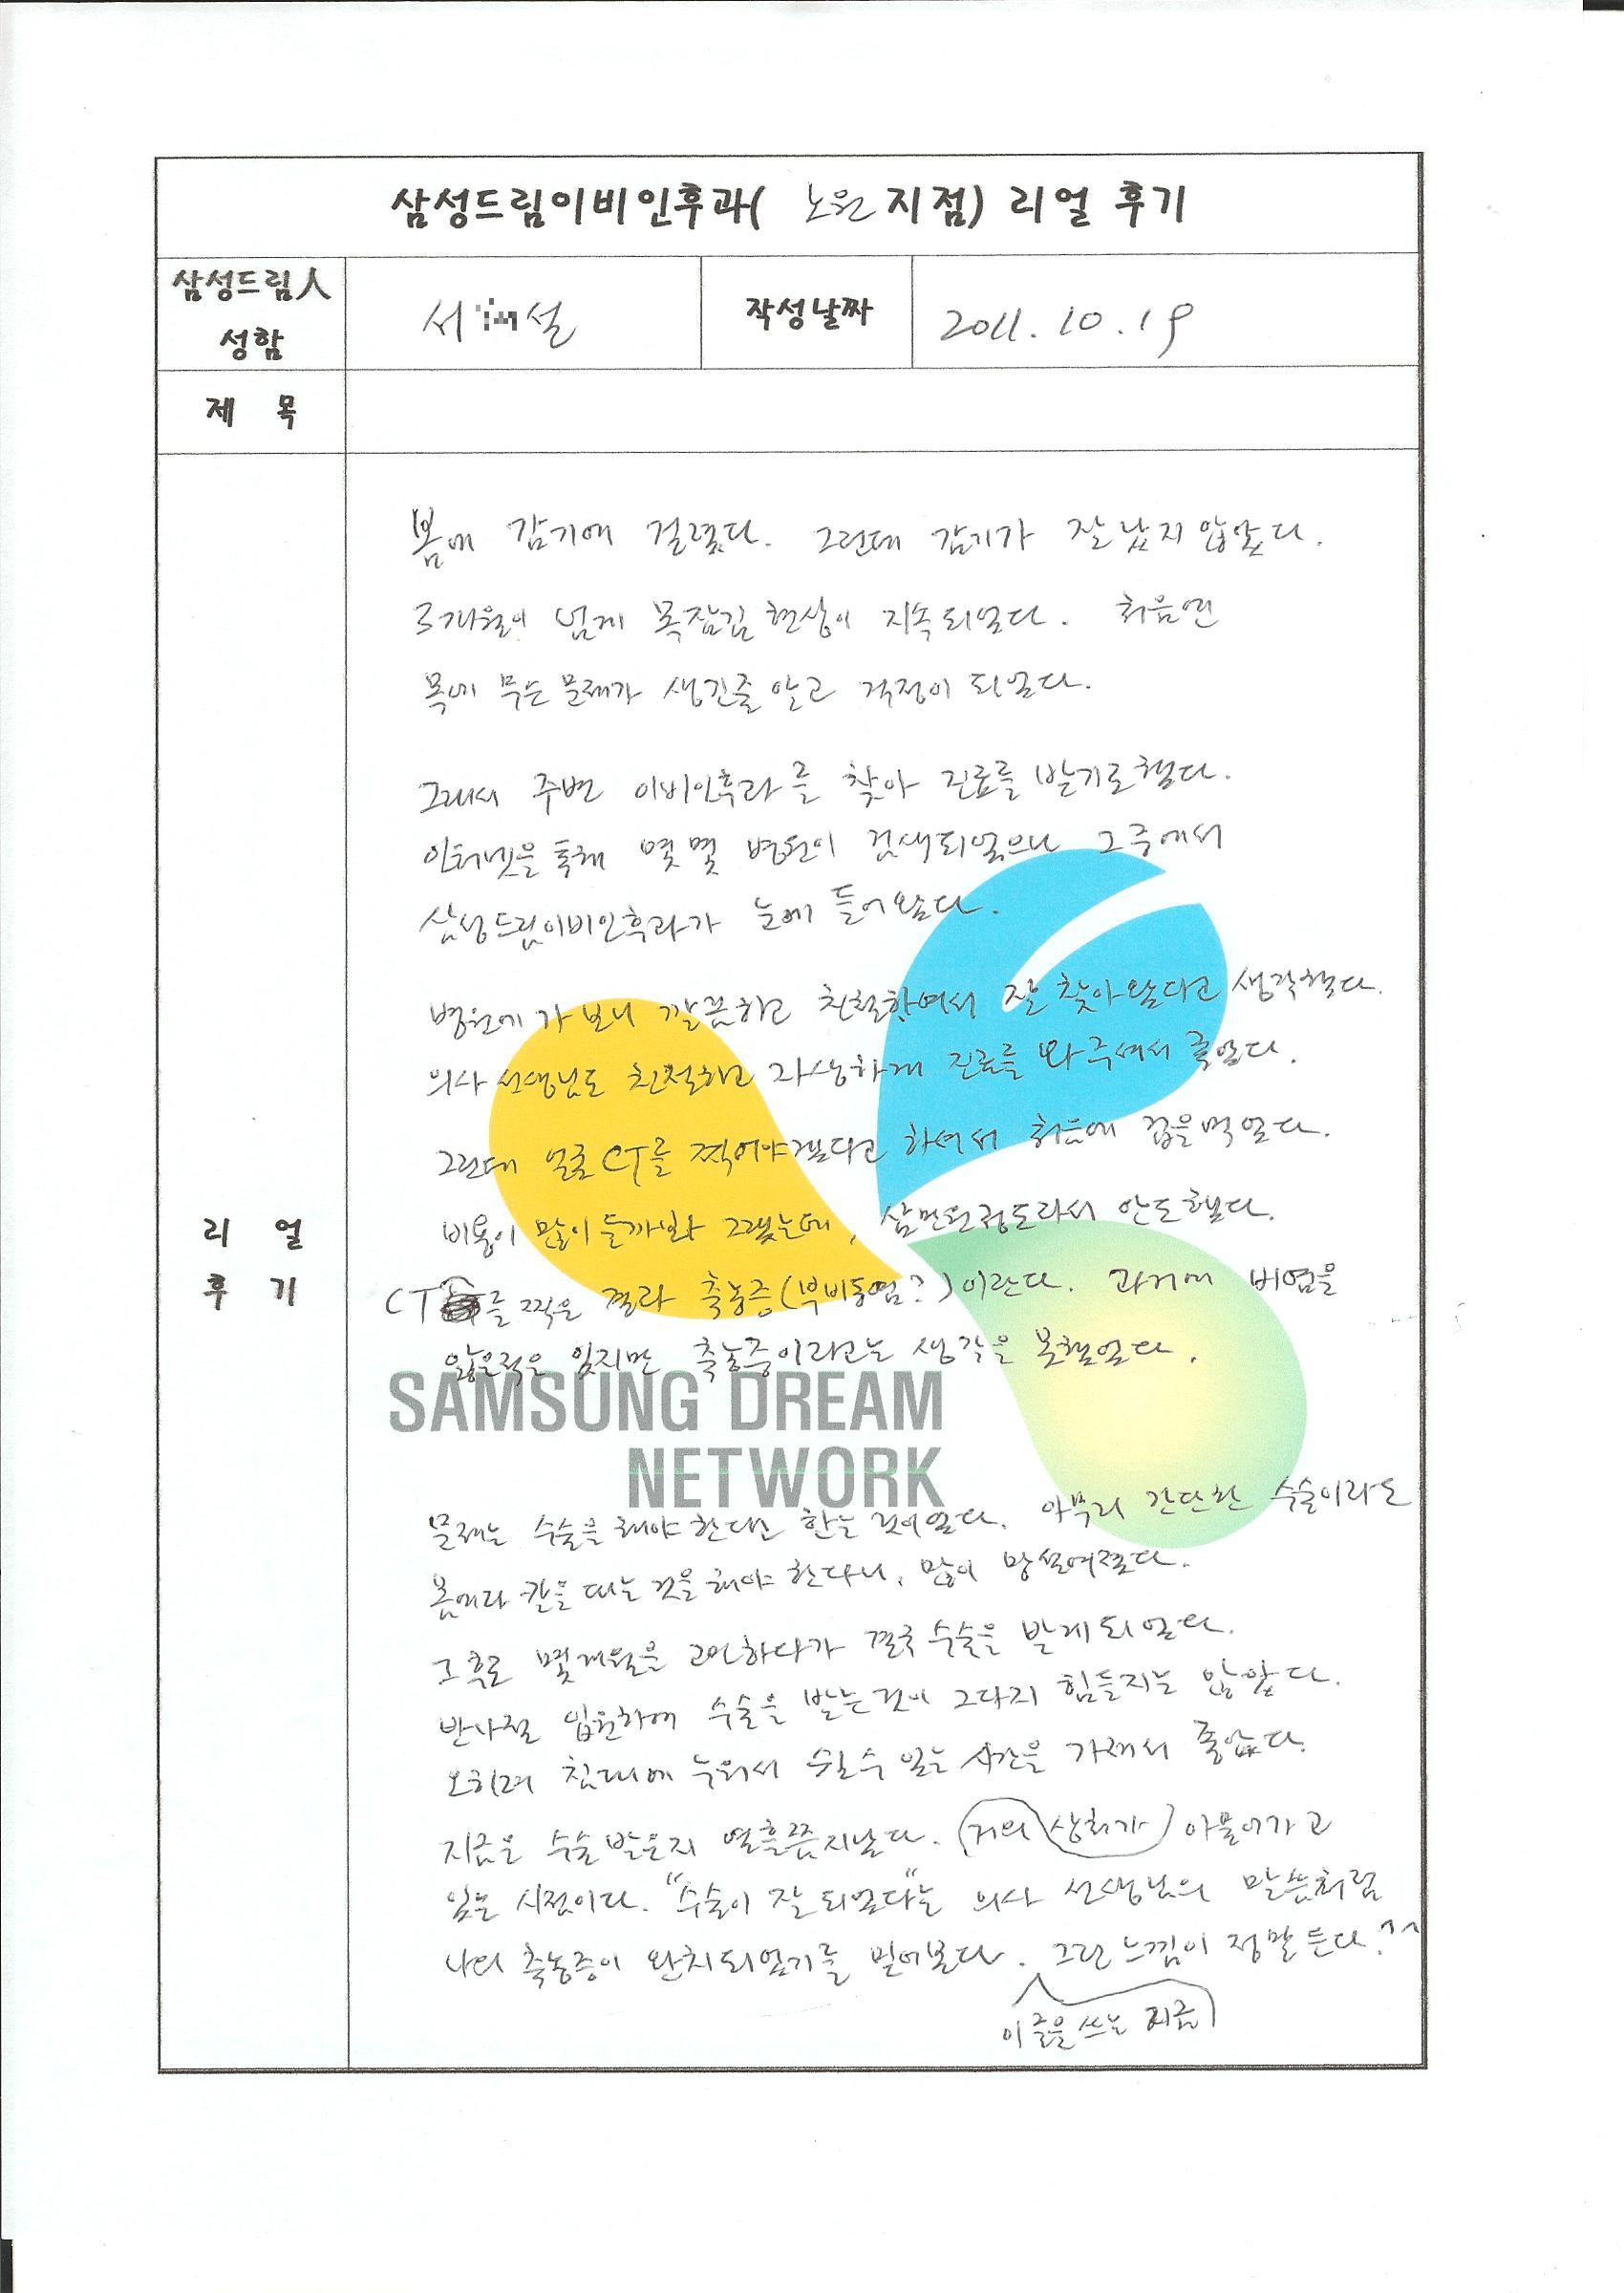 삼성드림이비인후과( 노원 지점) 리얼 후기
삼성드림人
성함
서 설
작성날짜
2011. 10. 19
제 목
리 얼
후 기
봄에 감기에 걸렸다. 그런데 감기가 잘 낫지 않았다.
3개월이 넘게 목잠김 현상이 지속되었다. 처음엔
목에 무슨 문제가 생긴줄 알고 걱정이 되었다.
그래서 주변 이비인후과를 찾아 진료를 받기로 했다.
인터넷을 통해 몇몇 병원이 검색되었으나 그 중에서
삼성드림이비인후과가 눈에 들어왔다.
병원에 가 보니 깔끔하고 친절하여서 잘 찾아왔다고 생각했다.
의사 선생님도 친절하고 자상하게 진료를 봐 주셔서 좋았다.
그런데 얼굴 CT를 찍어야겠다고 하셔서 처음에 겁을 먹었다.
비용이 많이 들까봐 그랬는데, 삼만원정도라서 안도했다.
CT를 찍은 결과 축농증(부비동염?)이란다. 과거에 비염을
앓은적은 있지만 축농증이라고는 생각을 못했었다.
SAMSUNG DREAM
NETWORK
문제는 수술을 해야 한다고 한는 것이었다. 아무리 간단한 수술이라도
몸에다 칼을 대는 것을 해야 한다니, 많이 망설여졌다.
그 후로 몇개월을 고민하다가 결국 수술을 받게 되었다.
반나절 입원하여 수술을 받는것이 그다지 힘들지는 않았다.
오히려 침대에 누워서 쉴 수 있는 시간을 가져서 좋았다.
지금은 수술 받은지 열흘쯤 지났다. (거의 상처가) 아물어가고
있는 시점이다. "수술이 잘 되었다"는 의사 선생님의 말씀처럼
나의 축농증이 완치되었기를 빌어본다. 그런 느낌이 정말 든다.^^
이 글을 쓰는 지금